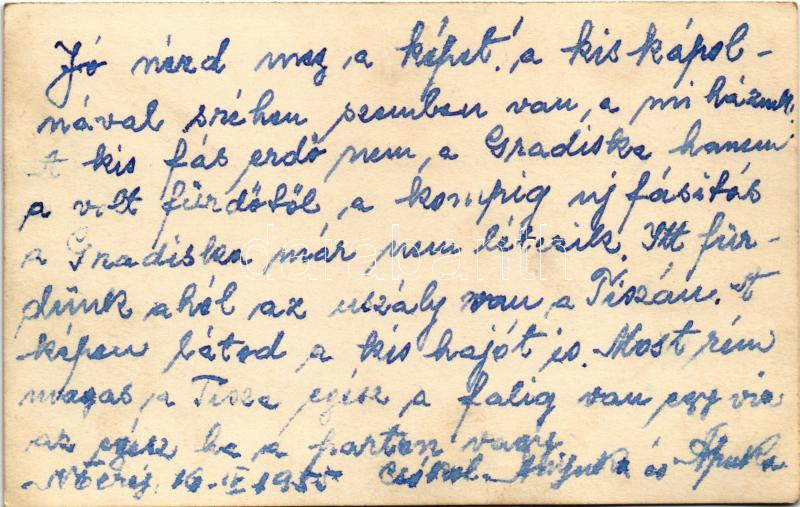 Jó nézd meg a képet! a kis kápol-
nával széhen szemben van, a mi házunk
A kis fás erdő nem, a Gradiska hanem
a volt fürdőtől a kompig új fásitás
a Gradiska már nem létezik. Itt für-
dünk ahol az uszály van a Tiszán. A
képen látod a kis hajót is. Most rém
magas a Tisza egész a falig van egy viz
az egész ha a parton vagy
16. IV 1955 Csókol Anyuka és Apuka
darabanth